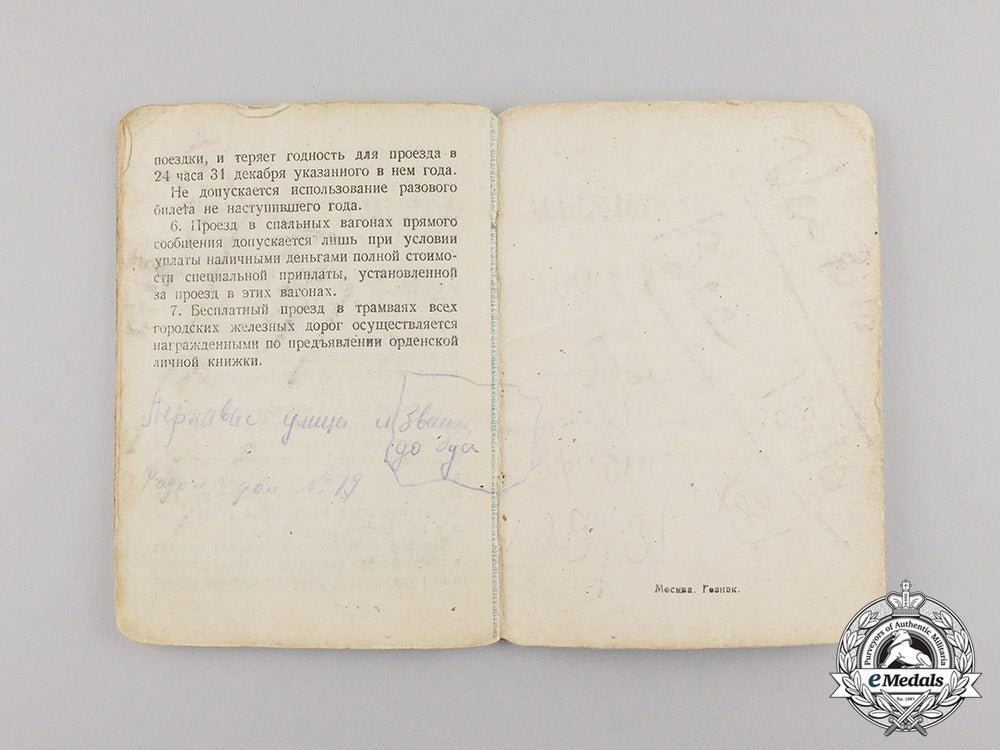 поездки, и теряет годность для проезда в
24 часа 31 декабря указанного в нем года.
Не допускается использование разового
билета не наступившего года.
6. Проезд в спальных вагонах прямого
сообщения допускается лишь при условии
уплаты наличными деньгами полной стоимо-
сти специальной приплаты, установленной
за проезд в этих вагонах.
7. Бесплатный проезд в трамваях всех
городских железных дорог осуществляется
награжденными по предъявлении орденской
личной книжки.
улица
до
дом № 19
Москва. Гознак.
Purveyors of Authentic Militaria
eMedals